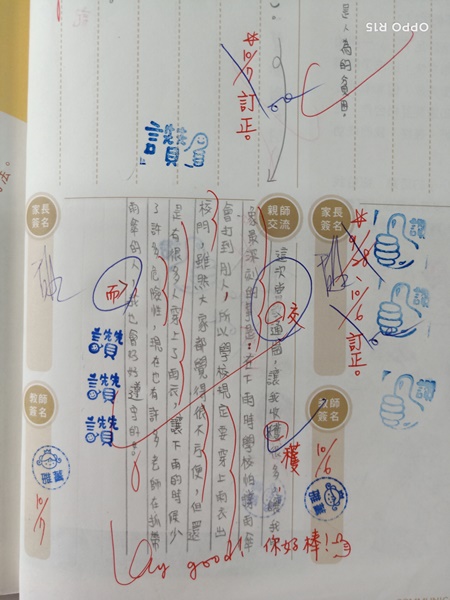 OPPO R15
10/7
訂正。
讚
家長簽名
10/6
訂正。
讚
讚
讚
教師簽名
10/6
親師交流
通國,讓我收穫很多,讓我
最深刻的事是:在下雨時學校怕撐雨傘
會打到別人,所以學校規定要穿上雨衣出
校門,雖然大家都覺得很不方便,但還
是有很多人穿上了雨衣,讓下雨的時候少
了許多危險性,現在也有許多老師在抓帶
雨傘的人,我也會好好遵守的。
交
穫
而
讚
讚
讚
家長簽名
教師簽名
10/7
Very good! 你好棒!